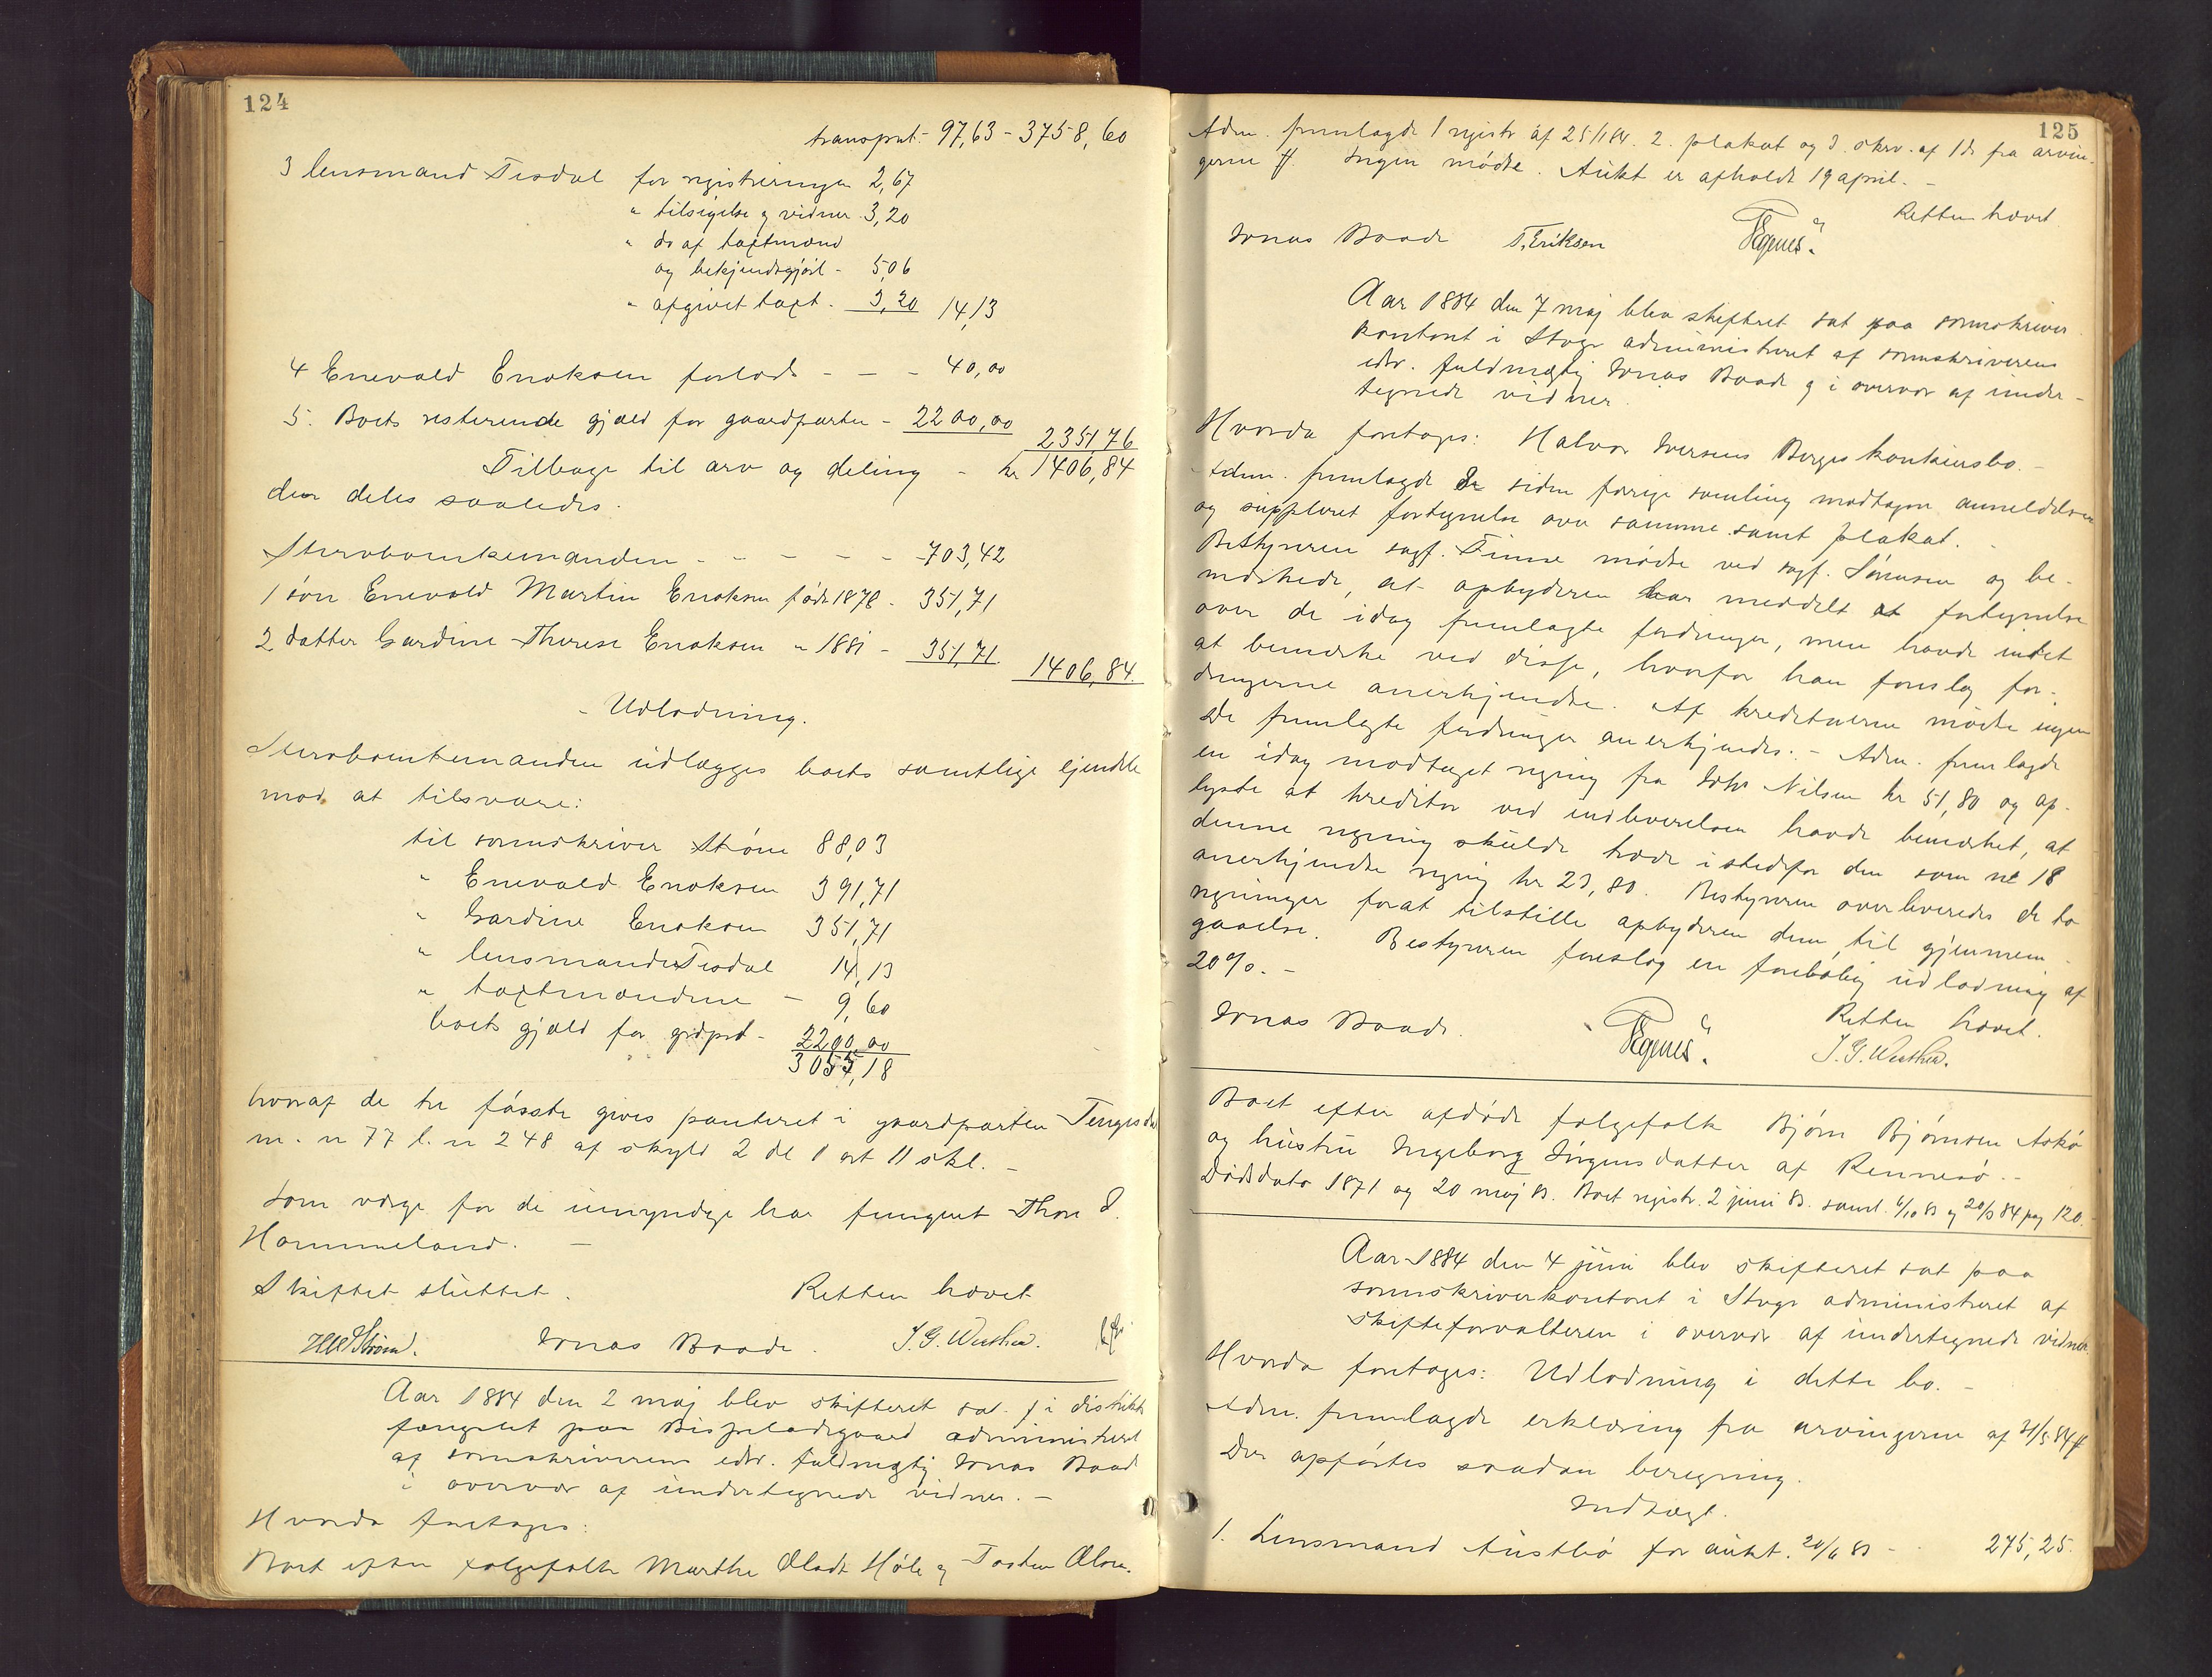 124
transport - 97,63 - 3758,60
3 lensmand Tisdal for registreringen 2,67
" tilsigelse og vidner 3,20
" do af taxtmænd
og bekjendtgjørl - 5,06
" afgivet taxt - 3,20 14,13
4 Enevald Enoksen forlods - - - 40,00
5. Boets resterende gjæld for gaardparten - 2200,00 2351,76
Tilbage til arv og deling - kr 1406,84
der deles saaledes:
Stervboenkemanden - - - - - 703,42
1 søn Enevald Martin Enoksen født 1878 - 351,71
2 datter Gardine Therese Enoksen " 1881 - 351,71 1406,84
- Udlodning.
Stervboenkemanden udlægges boets samtlige ejendele
mod at tilsvare:
til sorenskriver Strøm 88,03
" Enevald Enoksen 391,71
" Gardine Enoksen 351,71
" lensmand Tisdal 14,13
" taxtmændene - 9,60
boets gjæld for grdprt - 2200,00
3055,18
hvoraf de tre første gives panteret i gaardparten
m. nr 77 l. nr 248 af skyld 2 dl 1 ort 11 skl. -
Som værge for de umyndige har fungeret Thore
Hommeland. -
Skiftet sluttet. Retten hævet
Jonas Baade. J. G. Wuthen.
Aar 1884 den 2 maj blev skifteret sat i distrikts
fængslet paa Bispeladegaard administreret
af sorenskriverens edsv. fuldmægtig Jonas Baade
i overvær af undertegnede vidner. -
Hvorda foretages:
Boet efter folgefolk Marthe Høle og Tosten

125
Adm. fremlagde 1 registr af 25/1 84. 2. plakat og 3. skrv. af 1 ds fra arvin-
gerne ff. Ingen mødte. Aukt er afholdt 19 april. -
Retten hævet
Jonas Baade T. Eriksen
Aar 1884 den 7 maj blev skifteret sat paa sorenskriver
kontoret i Stvgr administreret af sorenskriverens
edsv. fuldmægtig Jonas Baade og i overvær af under-
tegnede vidner.
Hvorda foretages: Halvor Iversens Berges konkursbo. -
Adm. fremlagde de siden forrige samling modtagne anmeldelser
og suppleret fortegnelse over samme samt plakat. -
Bestyreren sagf. Finne mødte ved sagf. Sørensen og be-
mærkede, at opbyderen har meddelt at fortegnelse
over de idag fremlagte fordringer, men havde intet
at bemærke ved disse, hvorfor han foreslog for-
dringerne anerkjendte. Af kreditorerne mødte ingen
De fremlagte fordringer anerkjendes. - Adm. fremlagde
en idag modtaget regning fra Nilsen kr 51,80 og op-
lyste at kreditor ved indleverelsen havde bemærket, at
denne regning skulde træde istedfor den som nr 18
anerkjendte regning kr 23,80. Bestyreren overleveredes de to
regninger forat tilstille opbyderen dem til gjennem-
gaaelse. Bestyreren foreslog en foreløbig udlodning af
20%. -
Retten hævet.
Jonas Baade. J. G. Wuthen.
Boet efter afdøde folgefolk Bjørn Bjørnsen Askø
og hustru Ingeborg Jørgensdatter af Rennesø. -
Dødsdato 1871 og 20 maj 83. Boet registr. 2 juni 83. saml. 6/10 83 og 20/3 84 pag 120.
Aar 1884 den 4 juni blev skifteret sat paa
sorenskriverkontoret i Stvgr administreret af
skifteforvalteren i overvær af undertegnede vidner.
Hvorda foretages: Udlodning i dette bo. -
Adm. fremlagde erklæring fra arvingerne af 31/5 84 ff
Der opførtes saadan beregning.
Indtægt.
1. Lensmand Austbø for aukt. 20/6 83 - - 275,25.